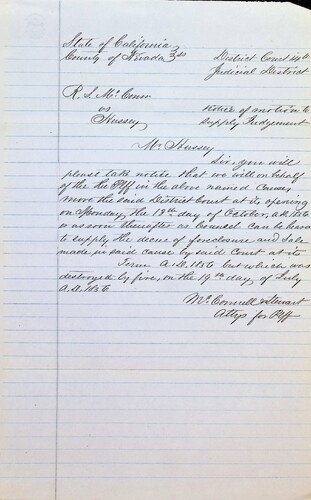 State of California
County of Nevada } ss
District Court 14th
Judicial District
R. S. McConn
vs
Hussey
Notice of motion to
supply Judgement
Mr Hussey
Sir, you will
please take notice that we will on behalf
of the the Plff in the above named Cause,
move the said District Court at its opening
on Monday, the 13th day of October, A.D. 1856
or as soon thereafter as Counsel can be heard
to supply the decree of foreclosure and Sale
made in said cause by said Court at its
Term A.D. 1856 but which was
destroyed by fire, on the 19th day of July
A.D. 1856
McConnell & Stewart
Attys for Plff